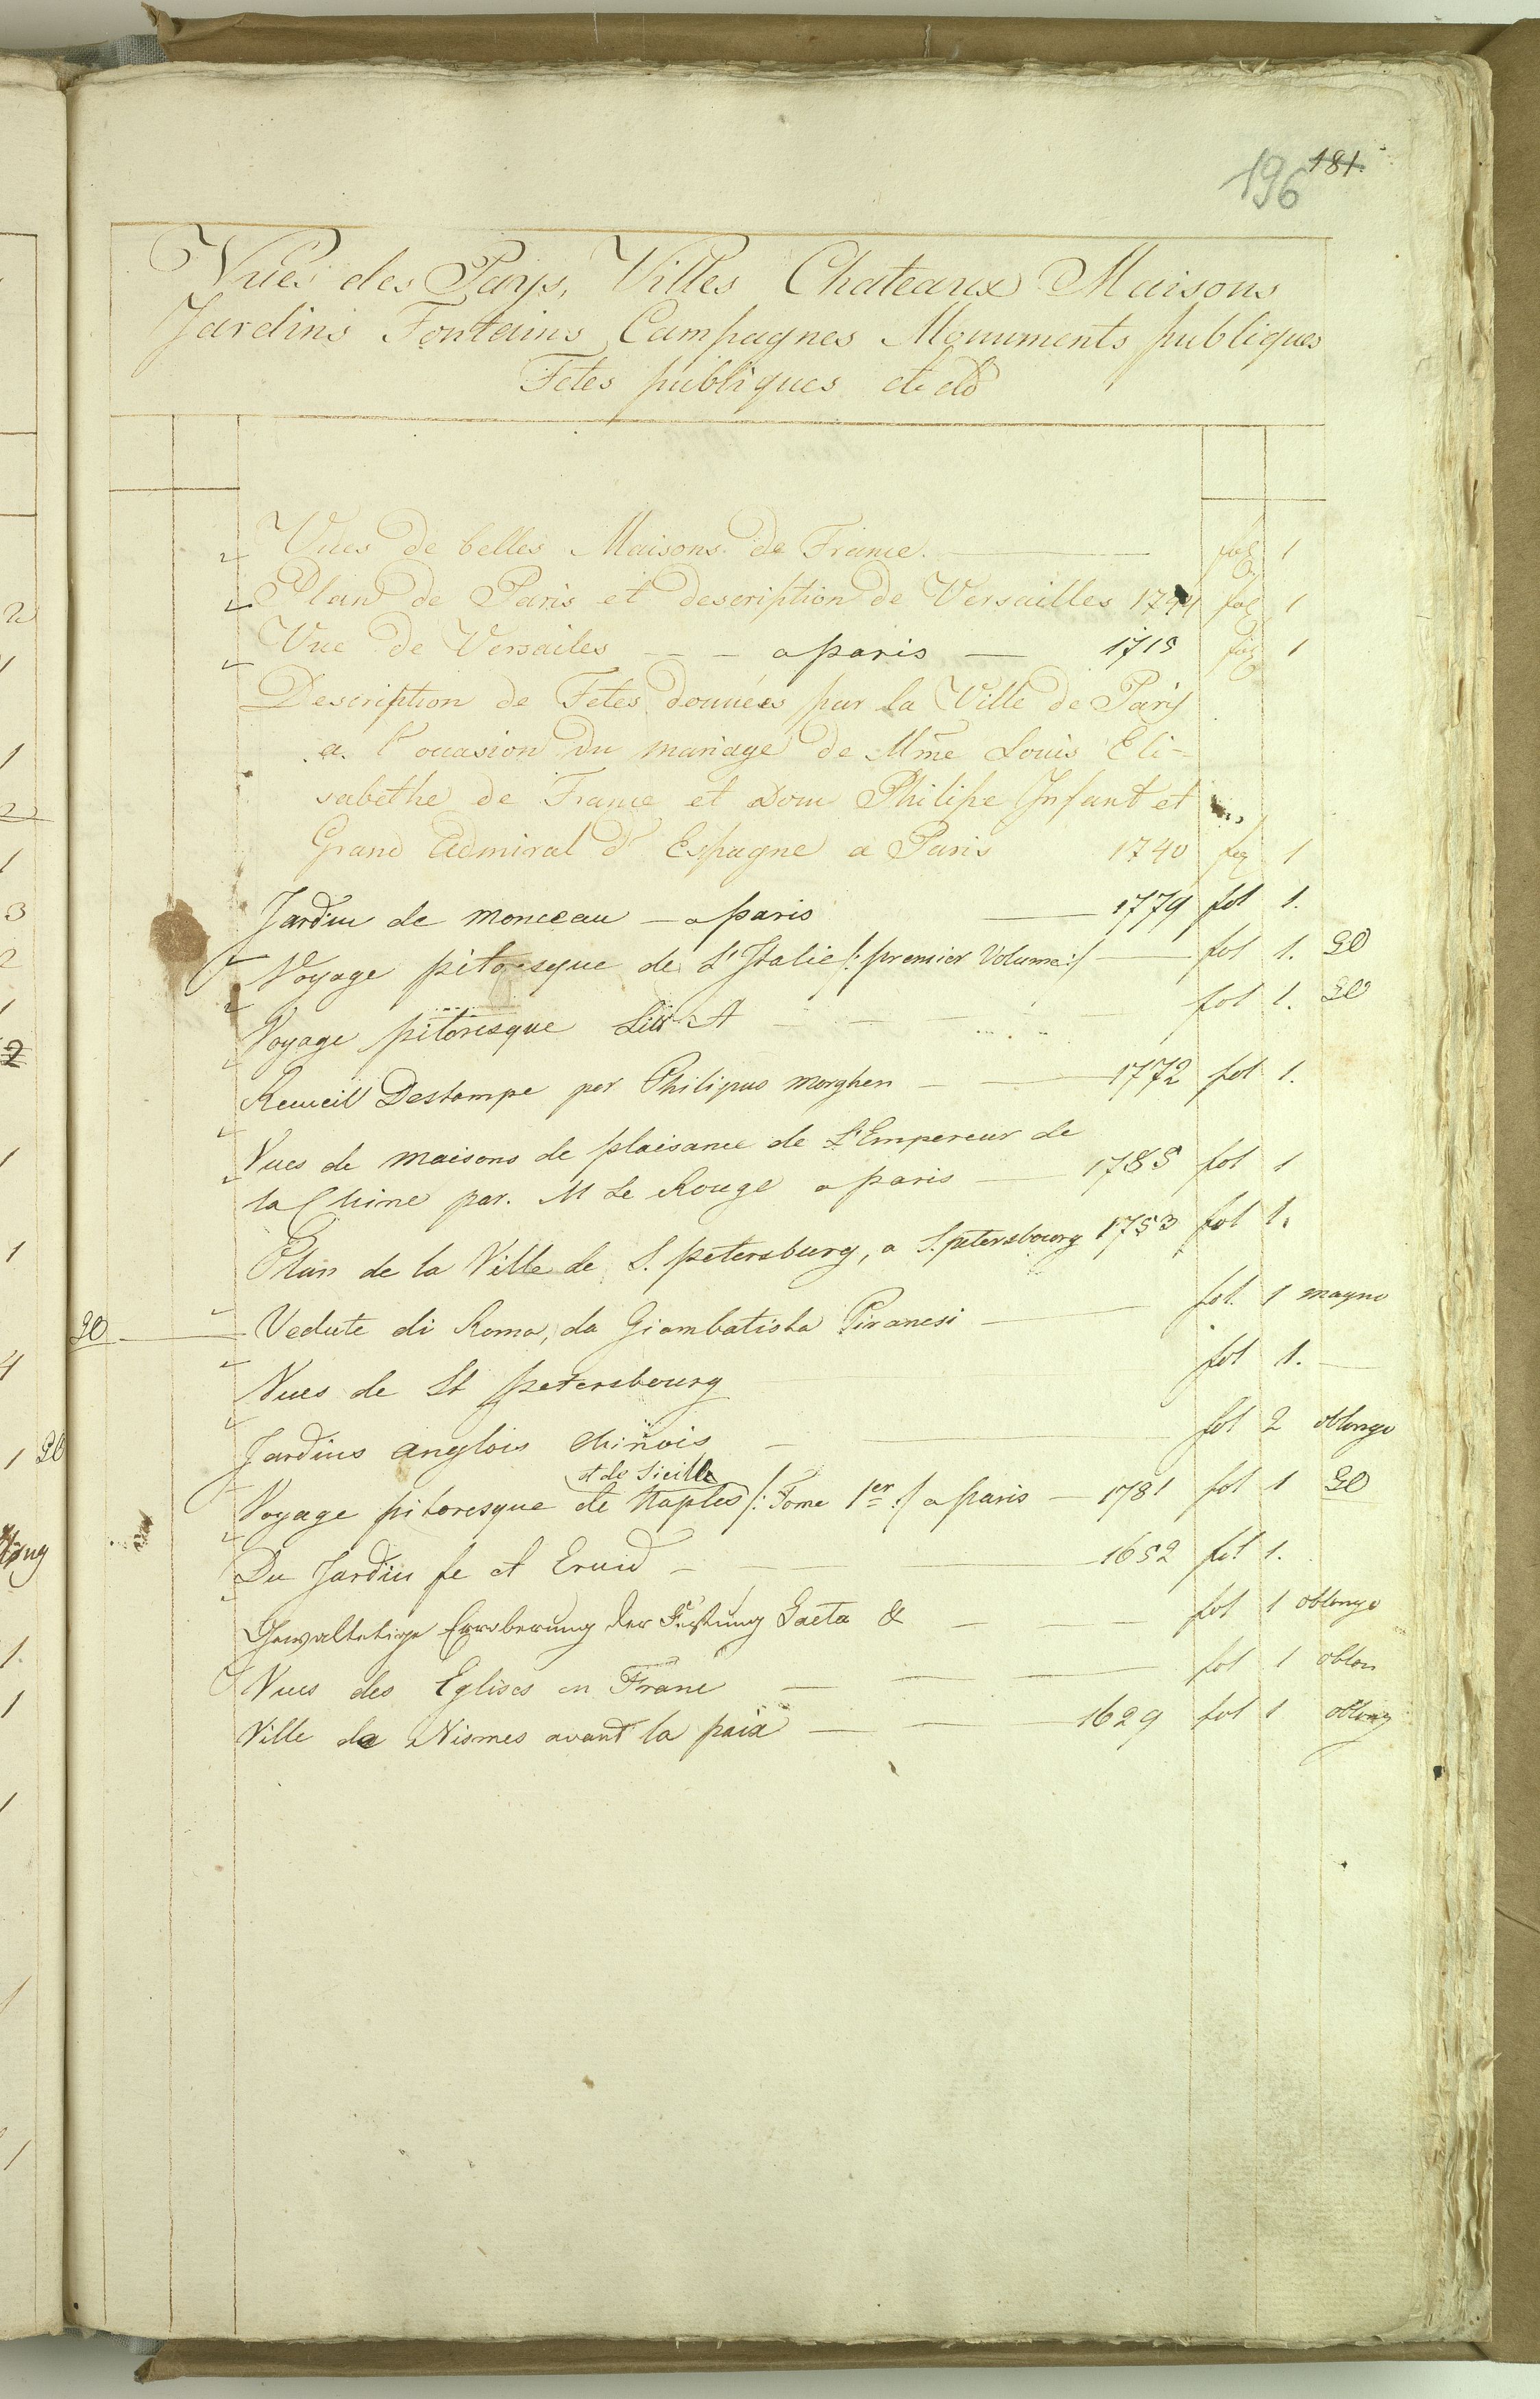 196 181.
Vües des Pays, Villes Chateaux Maisons
Jardins Fontains Campagnes Monuments publiques
Fetes publiques etc etc
Vues de belles Maisons de France. fol 1
Plan de Paris et description de Versailles fol 1
Vue de Versailes — — a paris — 1715 fol 1
Description de Fetes données par la Ville de Paris
a l'occasion du mariage de Mme Louis Eli-
sabethe de France et Dom Philipe Infant et
Grand Admiral d'Espagne a Paris 1740 fol 1
Jardin de monceau — a paris — 1779 fol 1.
Voyage pitoresque de L'Italie /: premier Volume :/ — fol 1.
Voyage pitoresque Litt A — — — fol 1.
Recueil Destampe par Philipus morghen — — 1772 fol 1.
Vues de maisons de plaisance de L'Empereur de
la Chine par. M Le Rouge a paris — 1785 fol 1
Plan de la Ville de S. petersburg, a S. petersbourg 1753 fol 1.
Vedute di Roma, da Giambatista Piranesi — — fol. 1 magno
Vues de St petersbourg fol 1. —
Jardins anglois chinois — — fol 2 oblongo
et de Sicille
Voyage pitoresque de Naples /: Tome 1er :/ a paris — 1781 fol 1
Du Jardin fe et Erund — — 1652 fol 1.
Gewaltetige Erroberung der Festung Gaeta & — — fol 1 oblongo
Vues des Eglises en Franc — — fol 1 oblon
Ville de Nismes avant la paix — — 1629 fol 1 oblong